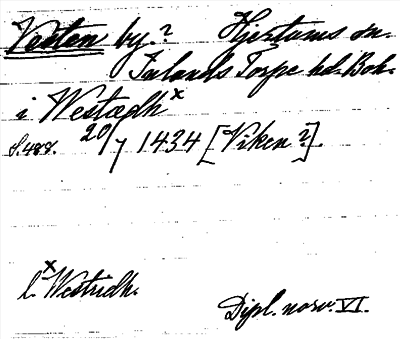 Vesten by.? Hjertums sn.
Inlands Torpe hd. Boh.
i Westædhˣ
S.488. 20/7 1434 [Viken?].
ˣ l. Westridh.
Dipl. norv. VI.